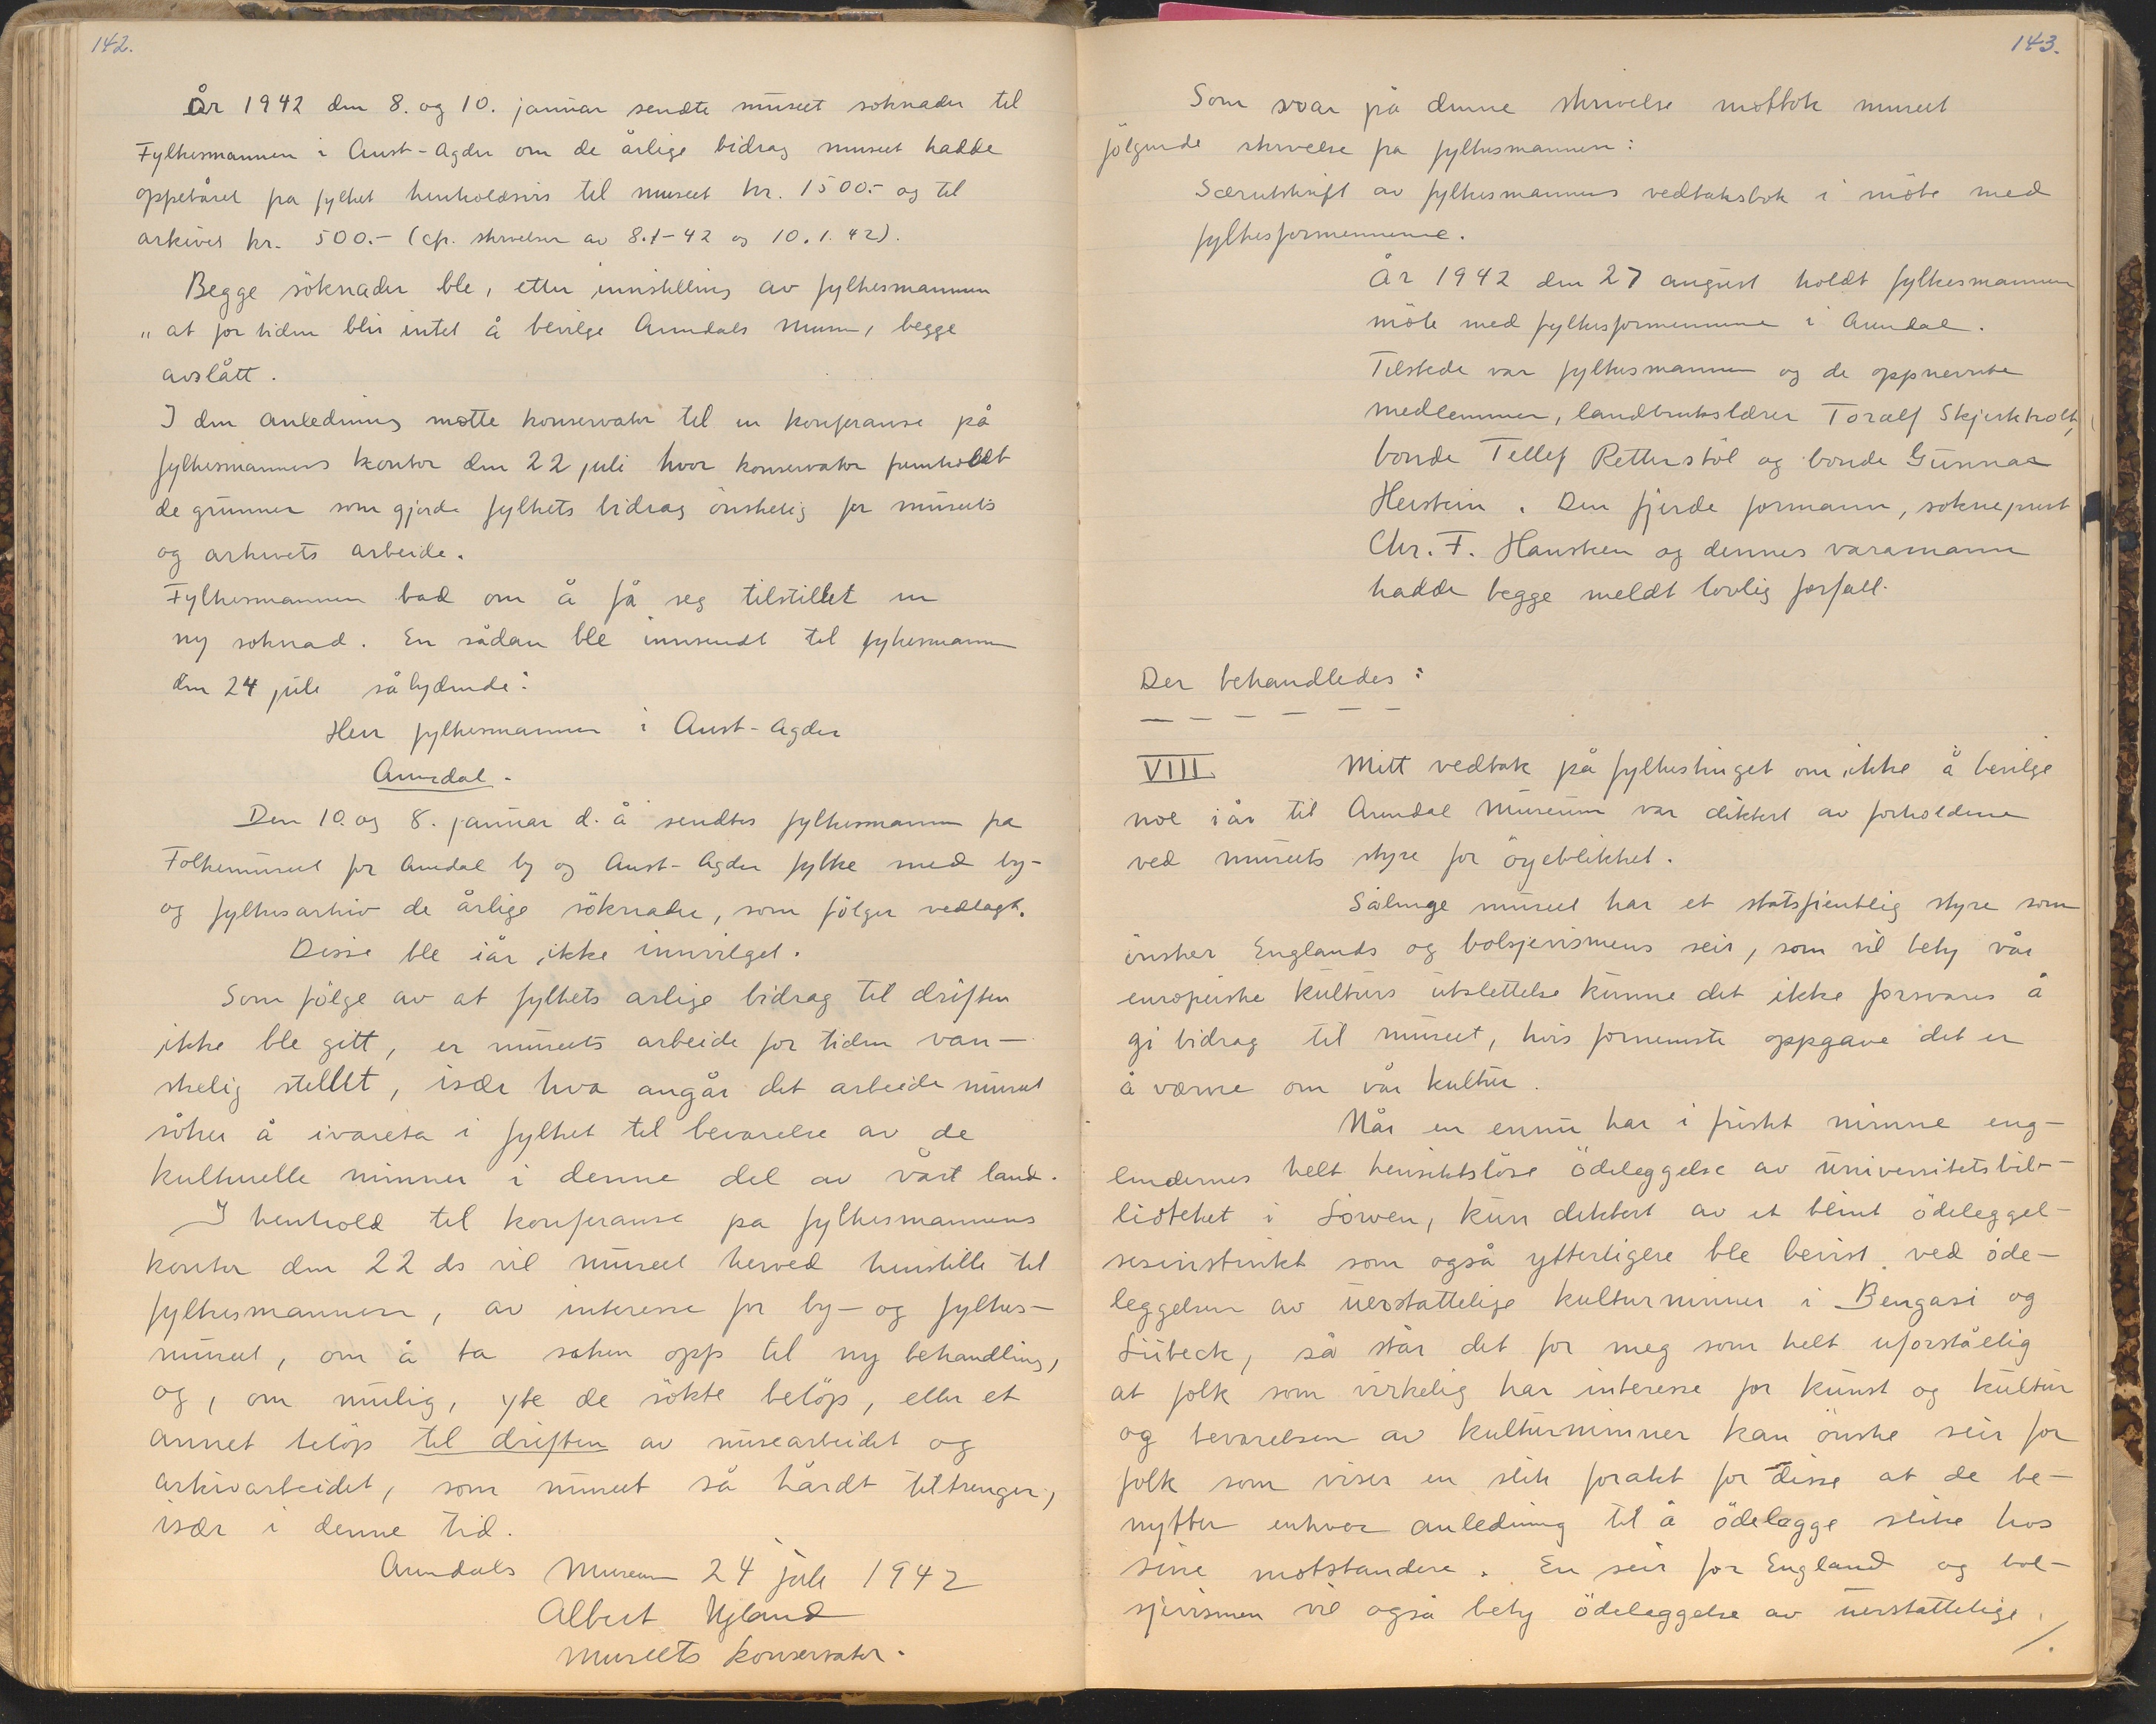 142.
År 1942 den 8. og 10. januar sendte museet søknader til
Fylkesmannen i Aust-Agder om de årlige bidrag museet hadde
oppebåret fra fylket henholdsvis til museet kr. 1500.- og til
arkivet kr. 500.- (cfr. skrivelser av 8.1-42 og 10.1.42).
Begge söknader ble, etter innstilling av fylkesmannen
" at for tiden blir intet å bevilge Arendals Museum, begge
avslått.
I den anledning møtte konservator til en konferanse på
fylkesmannens kontor den 22 juli hvor konservator fremholdt
de grunner som gjorde fylkets bidrag önskelig for museets
og arkivets arbeide.
Fylkesmannen bad om å få seg tilstillet en
ny søknad. En sådan ble innsendt til fylkesmannen
den 24 juli sålydende:
Herr fylkesmannen i Aust-Agder
Arendal.
Den 10. og 8. januar d. å sendtes fylkesmannen fra
Folkemuseet for Arendal by og Aust-Agder fylke med by-
og fylkesarkiv de årlige söknader, som fölger vedlagt.
Disse ble iår ikke innvilget.
Som fölge av at fylkets årlige bidrag til driften
ikke ble gitt, er museets arbeide for tiden van-
skelig stillet, især hva angår det arbeide museet
söker å ivareta i fylket til bevarelse av de
kulturelle minner i denne del av vårt land.
I henhold til konferanse på fylkesmannens
kontor den 22 ds vil museet herved henstille til
fylkesmannen, av interesse for by- og fylkes-
museet, om å ta saken opp til ny behandling,
og, om mulig, yte de sökte belöp, eller et
annet belöp til driften av musearbeidet og
arkivarbeidet, som museet så hårdt tiltrenger,
især i denne tid.
Arendals Museum 24 juli 1942
Albert Ugland
Museets konservator.
143.
Som svar på denne skrivelse mottok museet
fölgende skrivelse fra fylkesmannen:
Særutskrift av fylkesmannens vedtaksbok i möte med
fylkesformennene.
År 1942 den 27 august holdt fylkesmannen
möte med fylkesformennene i Arendal.
Tilstede var fylkesmannen og de oppnevnte
medlemmer, landbrukslærer Toralf Skjerkholt,
bonde Tellef Retterstöl og bonde Gunnar
Heistein. Den fjerde formann, sokneprest
Chr. F. Hansteen og dennes varamann
hadde begge meldt lovlig forfall.
Der behandledes:
VIII Mitt vedtak på fylkestinget om ikke å bevilge
noe iår til Arendal Museum var diktert av forholdene
ved museets styre for öyeblikket.
Sålenge museet har et statsfientlig styre som
önsker Englands og bolsjevismens seir, som vil bety vår
europeiske kulturs utslettelse kunne det ikke forsvares å
gi bidrag til museet, hvis fornemste oppgave det er
å værne om vår kultur.
Når en ennu har i friskt minne eng-
lendernes helt hensiktslöse ödeleggelse av universitetsbib-
lioteket i Löwen, kun diktert av et blint ödeleggel-
sesinstinkt som også ytterligere ble bevist ved öde-
leggelsen av uerstattelige kulturminner i Bengasi og
Lübeck, så står det for meg som helt uforståelig
at folk som virkelig har interesse for kunst og kultur
og bevarelsen av kulturminner kan önske seir for
folk som viser en slik forakt for disse at de be-
nytter enhver anledning til å ödelegge slike hos
sine motstandere. En seir for England og bol-
sjevismen vil også bety ödeleggelse av uerstattelige
/.